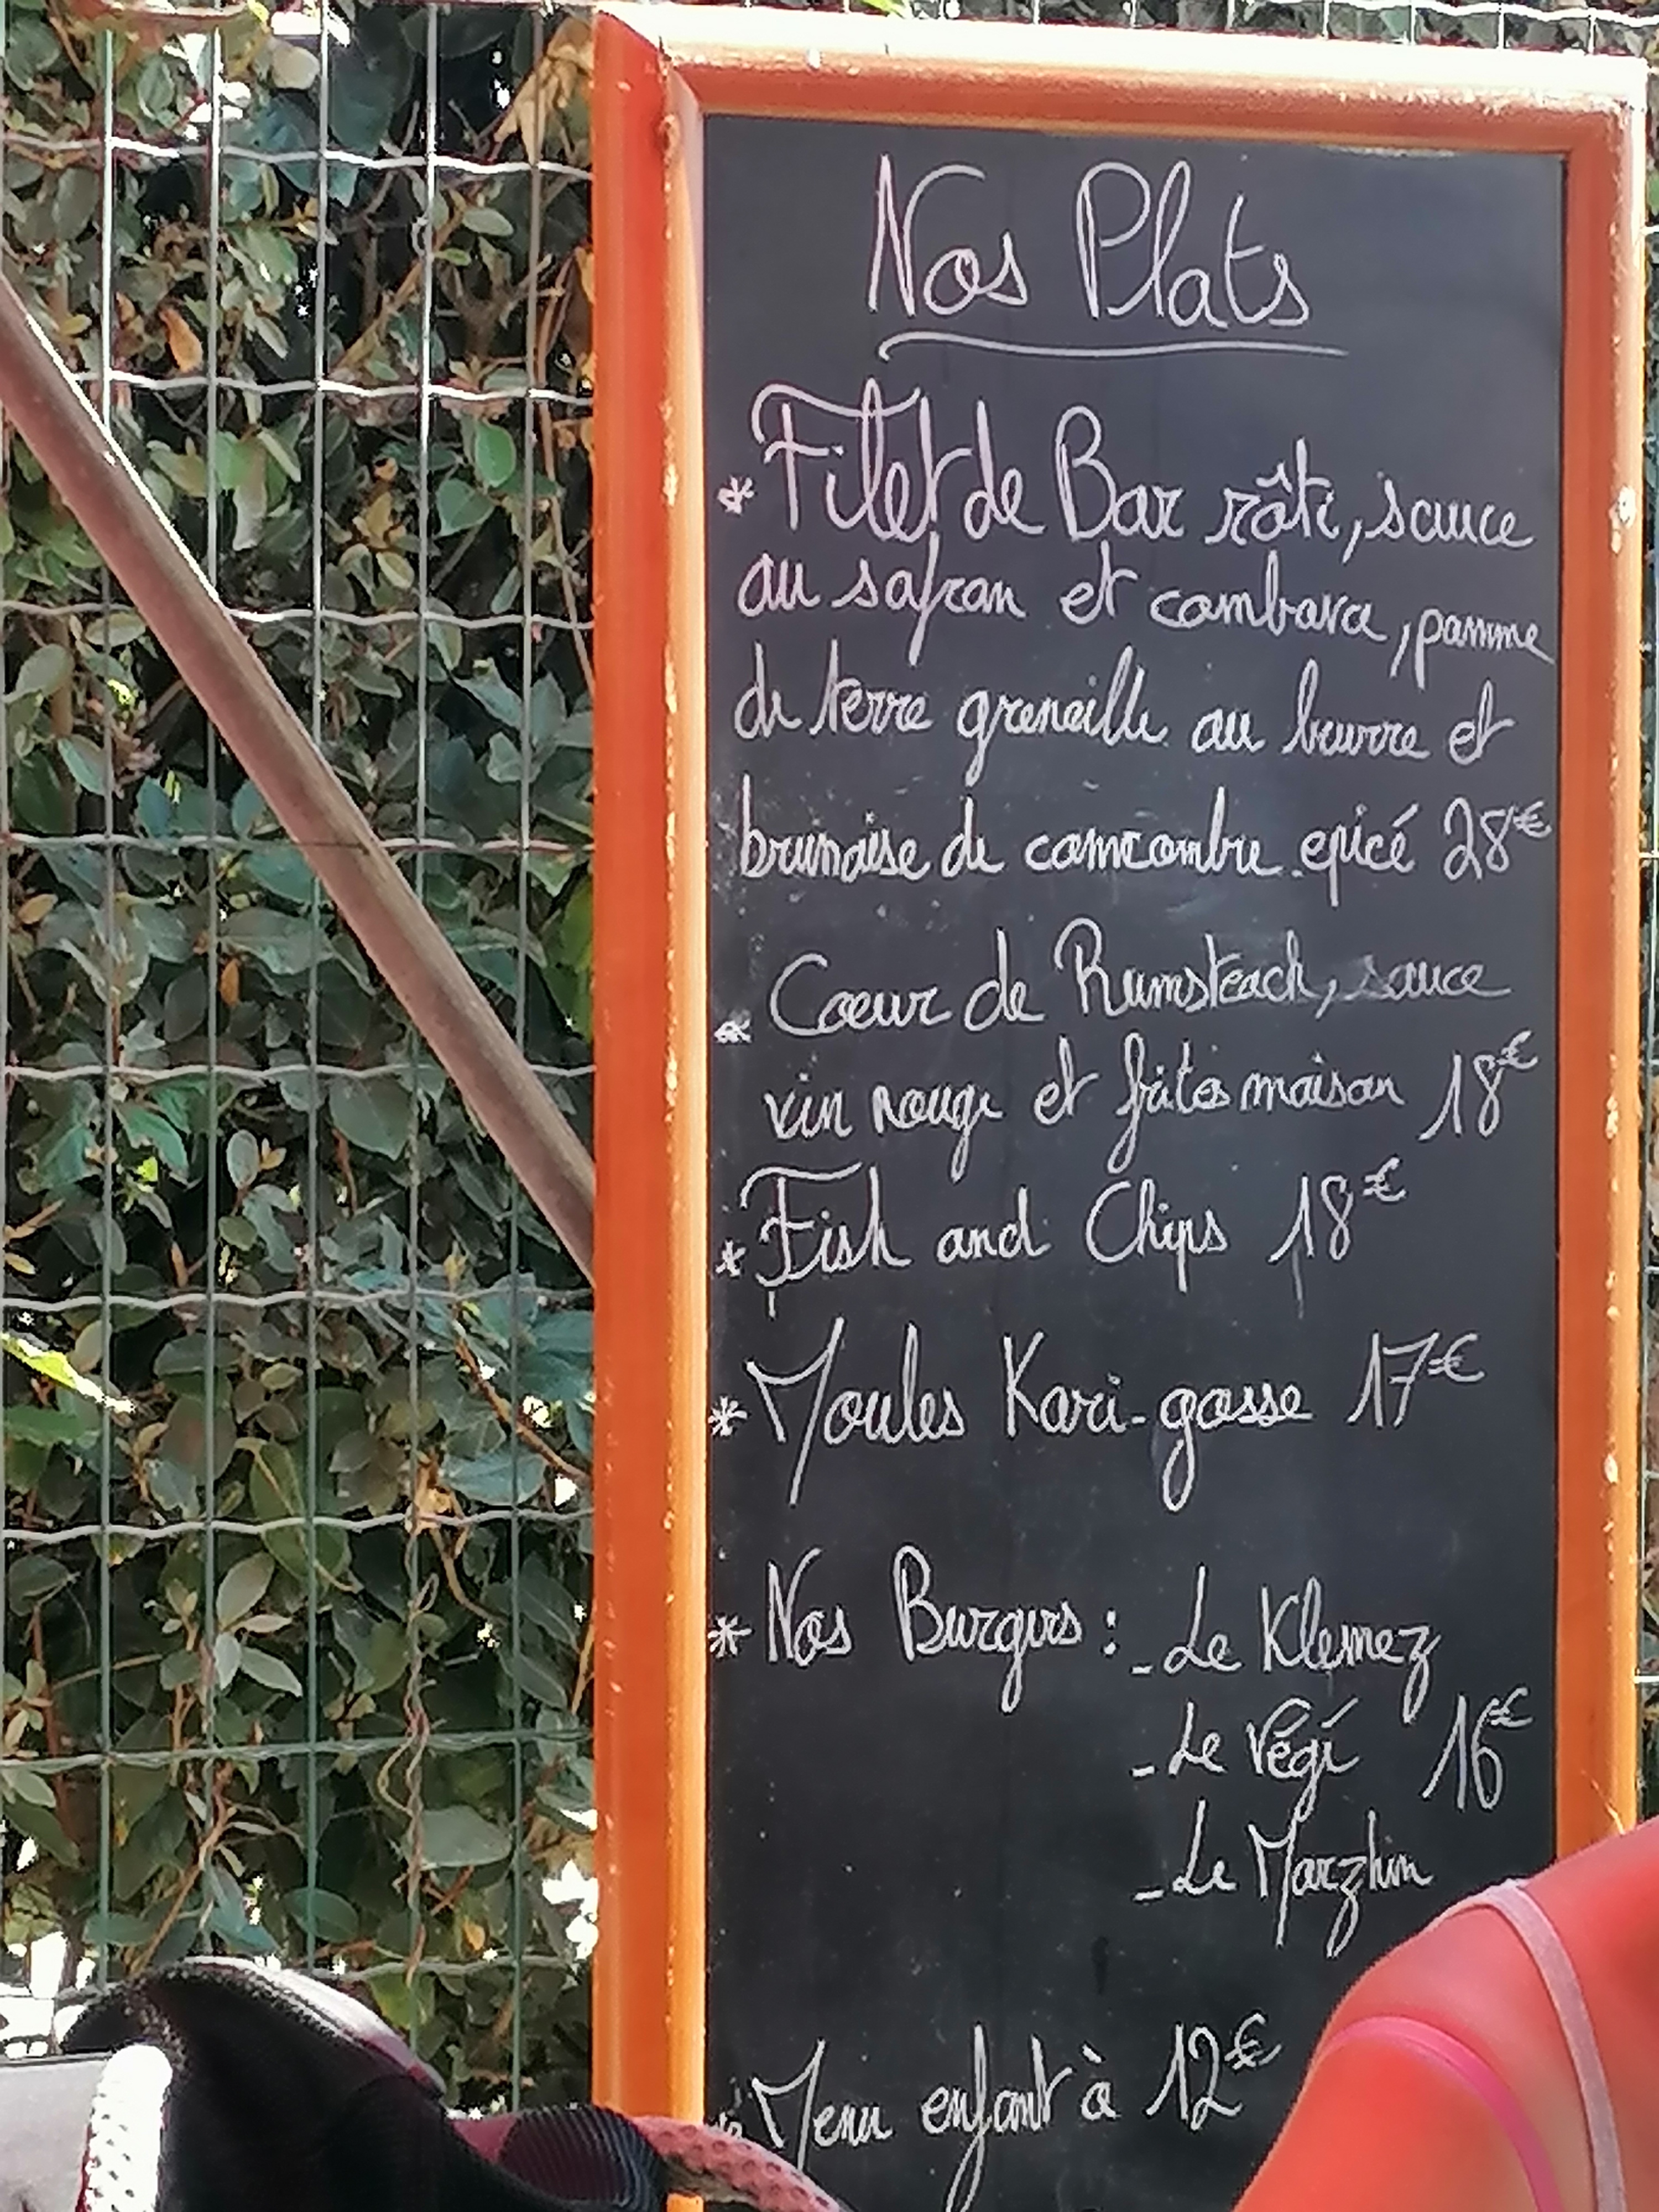 Nos Plats
* Filet de Bar rôti, sauce
au safran et combava, pomme
de terre grenaille au beurre et
brunoise de concombre epicé 28€
* Coeur de Rumsteack, sauce
vin rouge et frites maison 18€
* Fish and Chips 18€
* Moules Kari-gosse 17€
* Nos Burgers : - Le Klemez
- Le Végí 16€
- Le Marzhin
* Menu enfant à 12€